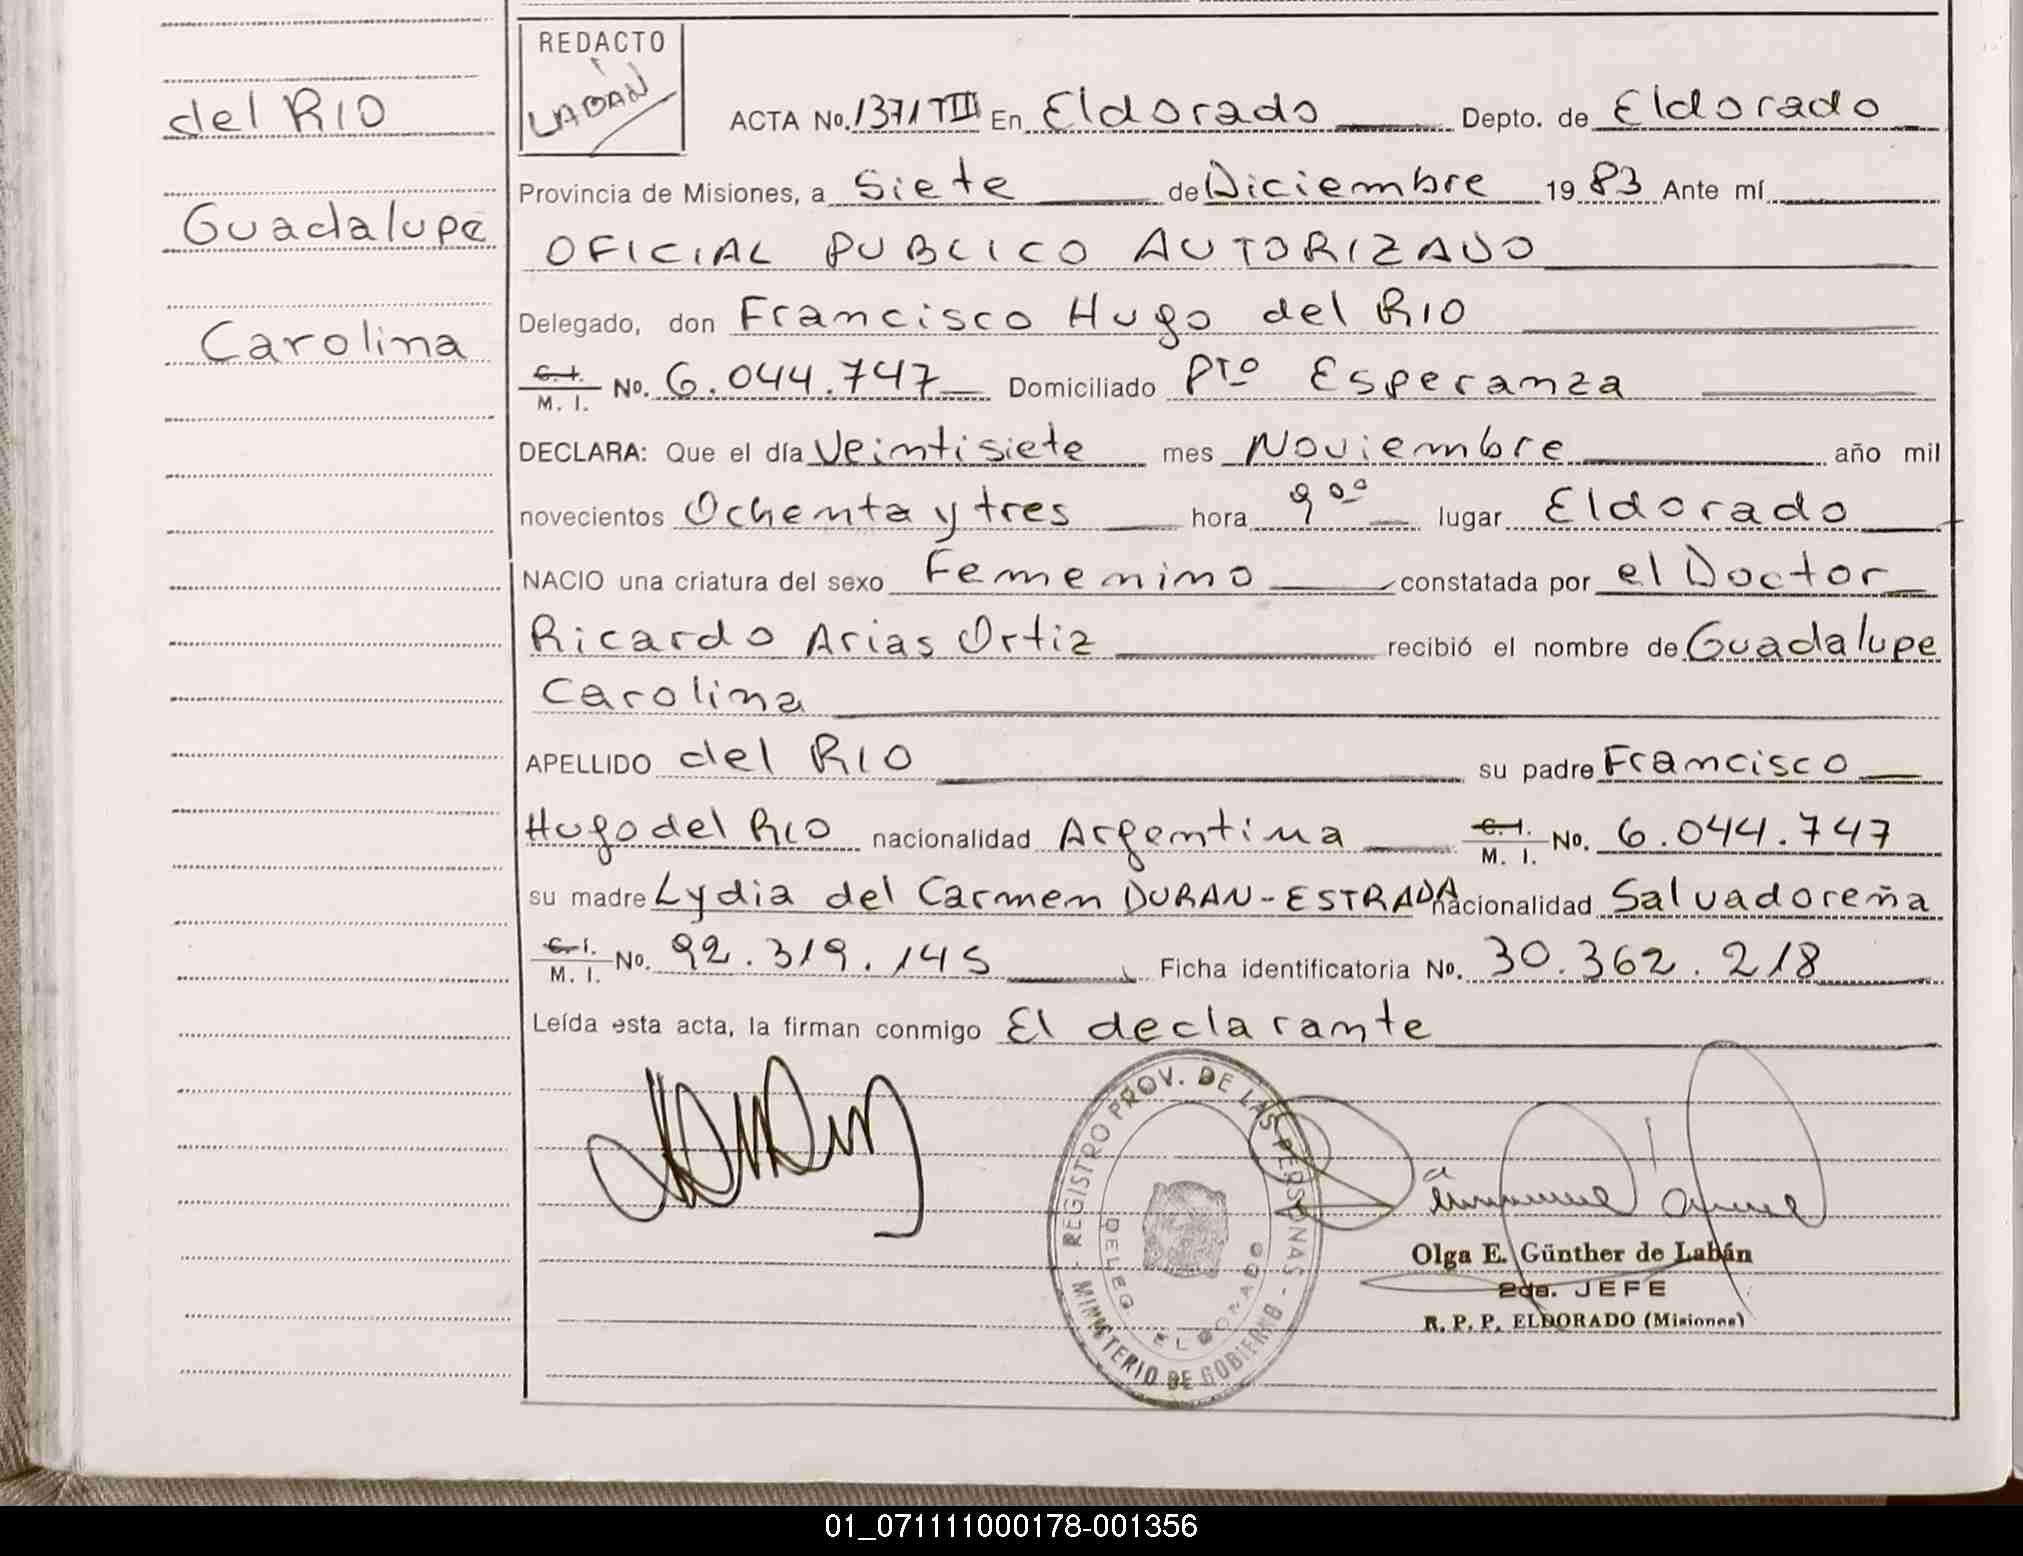 del RIO
Guadalupe
Carolina
REDACTO
LABAN
ACTA No. 1371 TIII En Eldorado Depto. de Eldorado
Provincia de Misiones, a Siete de Diciembre 1983 Ante mí
OFICIAL PUBLICO AUTORIZADO
Delegado, don Francisco Hugo del RIO
C. I. M. I. No. 6.044.747 Domiciliado Pto Esperanza
DECLARA: Que el día Veintisiete mes Noviembre año mil
novecientos Ochenta y tres hora 9 00 lugar Eldorado
NACIO una criatura del sexo Femenino constatada por el Doctor
Ricardo Arias Ortiz recibió el nombre de Guadalupe
Carolina
APELLIDO del RIO su padre Francisco
Hugo del RIO nacionalidad Argentina C. I. M. I. No. 6.044.747
su madre Lydia del Carmen DURAN-ESTRADA nacionalidad Salvadoreña
C. I. M. I. No. 92.319.145 Ficha identificatoria No. 30.362.218
Leída esta acta, la firman conmigo El declarante
REGISTRO PROV. DE LAS PERSONAS - MINISTERIO DE GOBIERNO -
DELEG. ELDORADO
Olga E. Günther de Labán
2da. JEFE
R. P. P. ELDORADO (Misiones)
01_071111000178-001356